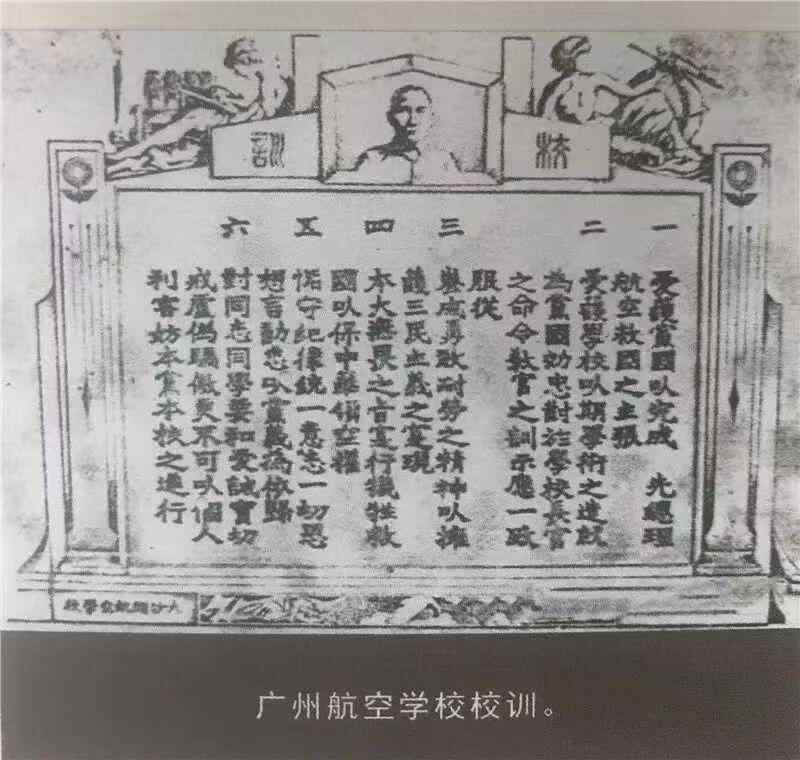 校訓
一 愛護黨國以完成 先總理
航空救國之主張
二 愛護學校以期學術之造就
為黨國効忠對於學校長官
之命令教官之訓示應一致
服從
三 養成勇敢耐勞之精神以擁
護三民主義之實現
四 本大無畏之旨實行犧牲救
國以保中華領空權
五 恪守紀律統一意志一切思
想言動悉以黨義為依歸
六 對同志同學要和愛誠實切
戒虛偽驕傲更不可以個人
利害妨本黨本校之進行
大沙頭航空學校
广州航空学校校训。